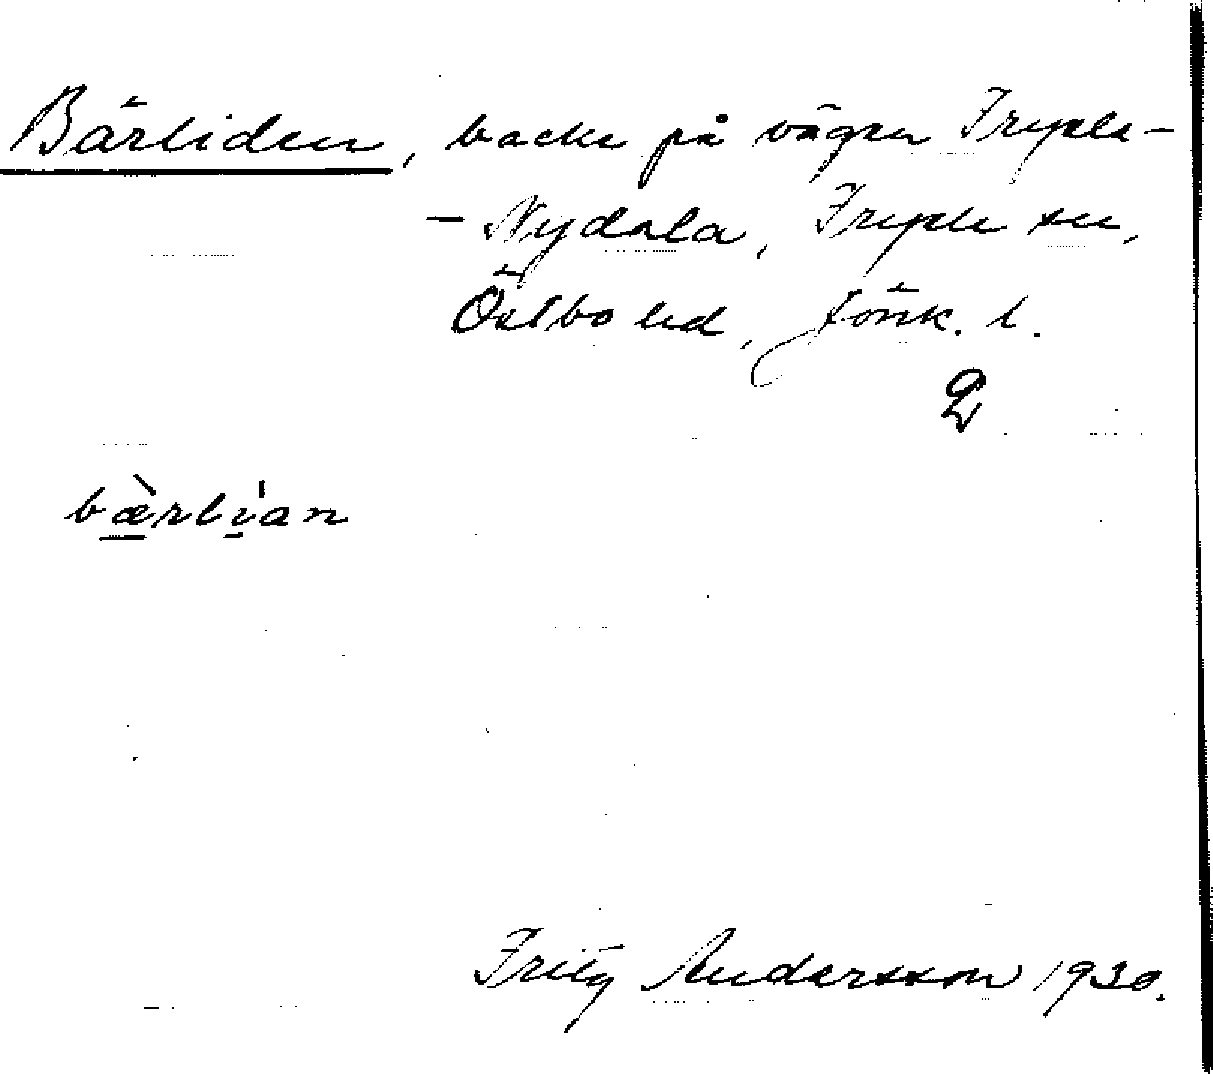 Bärliden, backe på vägen Fryele-
- Nydala, Fryele sn,
Östbo hd, Jönk. l.
2
bæ̀rli̍an
Fritz Andersson 1930.